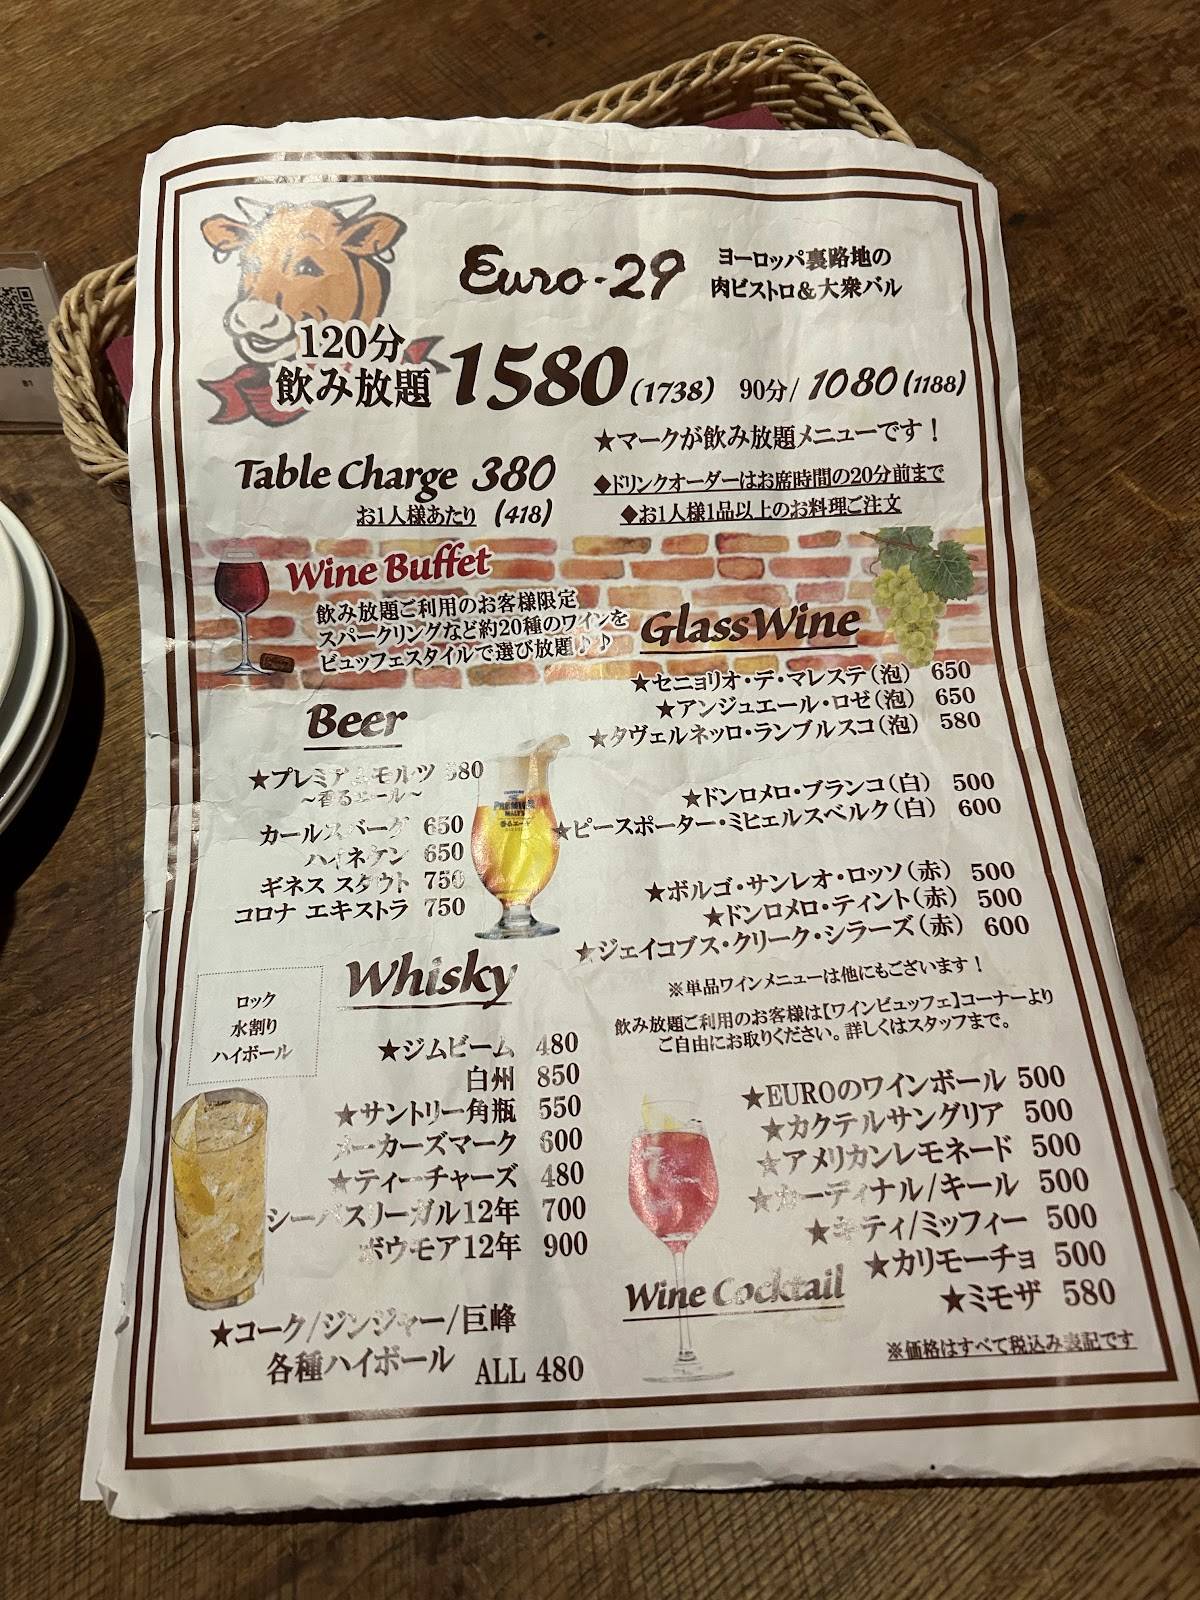 Euro-29
ヨーロッパ裏路地の
肉ビストロ&大衆バル
120分
飲み放題 1580 (1738) 90分/ 1080 (1188)
★マークが飲み放題メニューです!
Table Charge 380
お1人様あたり (418)
◆ドリンクオーダーはお席時間の20分前まで
◆お1人様1品以上のお料理ご注文
Wine Buffet
飲み放題ご利用のお客様限定
スパークリングなど約20種のワインを
ビュッフェスタイルで選び放題♪♪
Glass Wine
★セニョリオ・デ・マレステ(泡) 650
★アンジュエール・ロゼ(泡) 650
★タヴェルネッロ・ランブルスコ(泡) 580
★ドンロメロ・ブランコ(白) 500
★ピースポーター・ミヒェルスベルク(白) 600
★ボルゴ・サンレオ・ロッソ(赤) 500
★ドンロメロ・ティント(赤) 500
★ジェイコブス・クリーク・シラーズ(赤) 600
※単品ワインメニューは他にもございます!
飲み放題ご利用のお客様は【ワインビュッフェ】コーナーより
ご自由にお取りください。詳しくはスタッフまで。
Beer
★プレミアムモルツ 580
~香るエール~
カールスバーグ 650
ハイネケン 650
ギネス スタウト 750
コロナ エキストラ 750
PREMIUM
MALT'S
Whisky
ロック
水割り
ハイボール
★ジムビーム 480
白州 850
★サントリー角瓶 550
メーカーズマーク 600
★ティーチャーズ 480
シーバスリーガル12年 700
ボウモア12年 900
★コーク/ジンジャー/巨峰
各種ハイボール ALL 480
★EUROのワインボール 500
★カクテルサングリア 500
★アメリカンレモネード 500
★カーディナル/キール 500
★キティ/ミッフィー 500
★カリモーチョ 500
★ミモザ 580
Wine Cocktail
※価格はすべて税込み表記です
B1